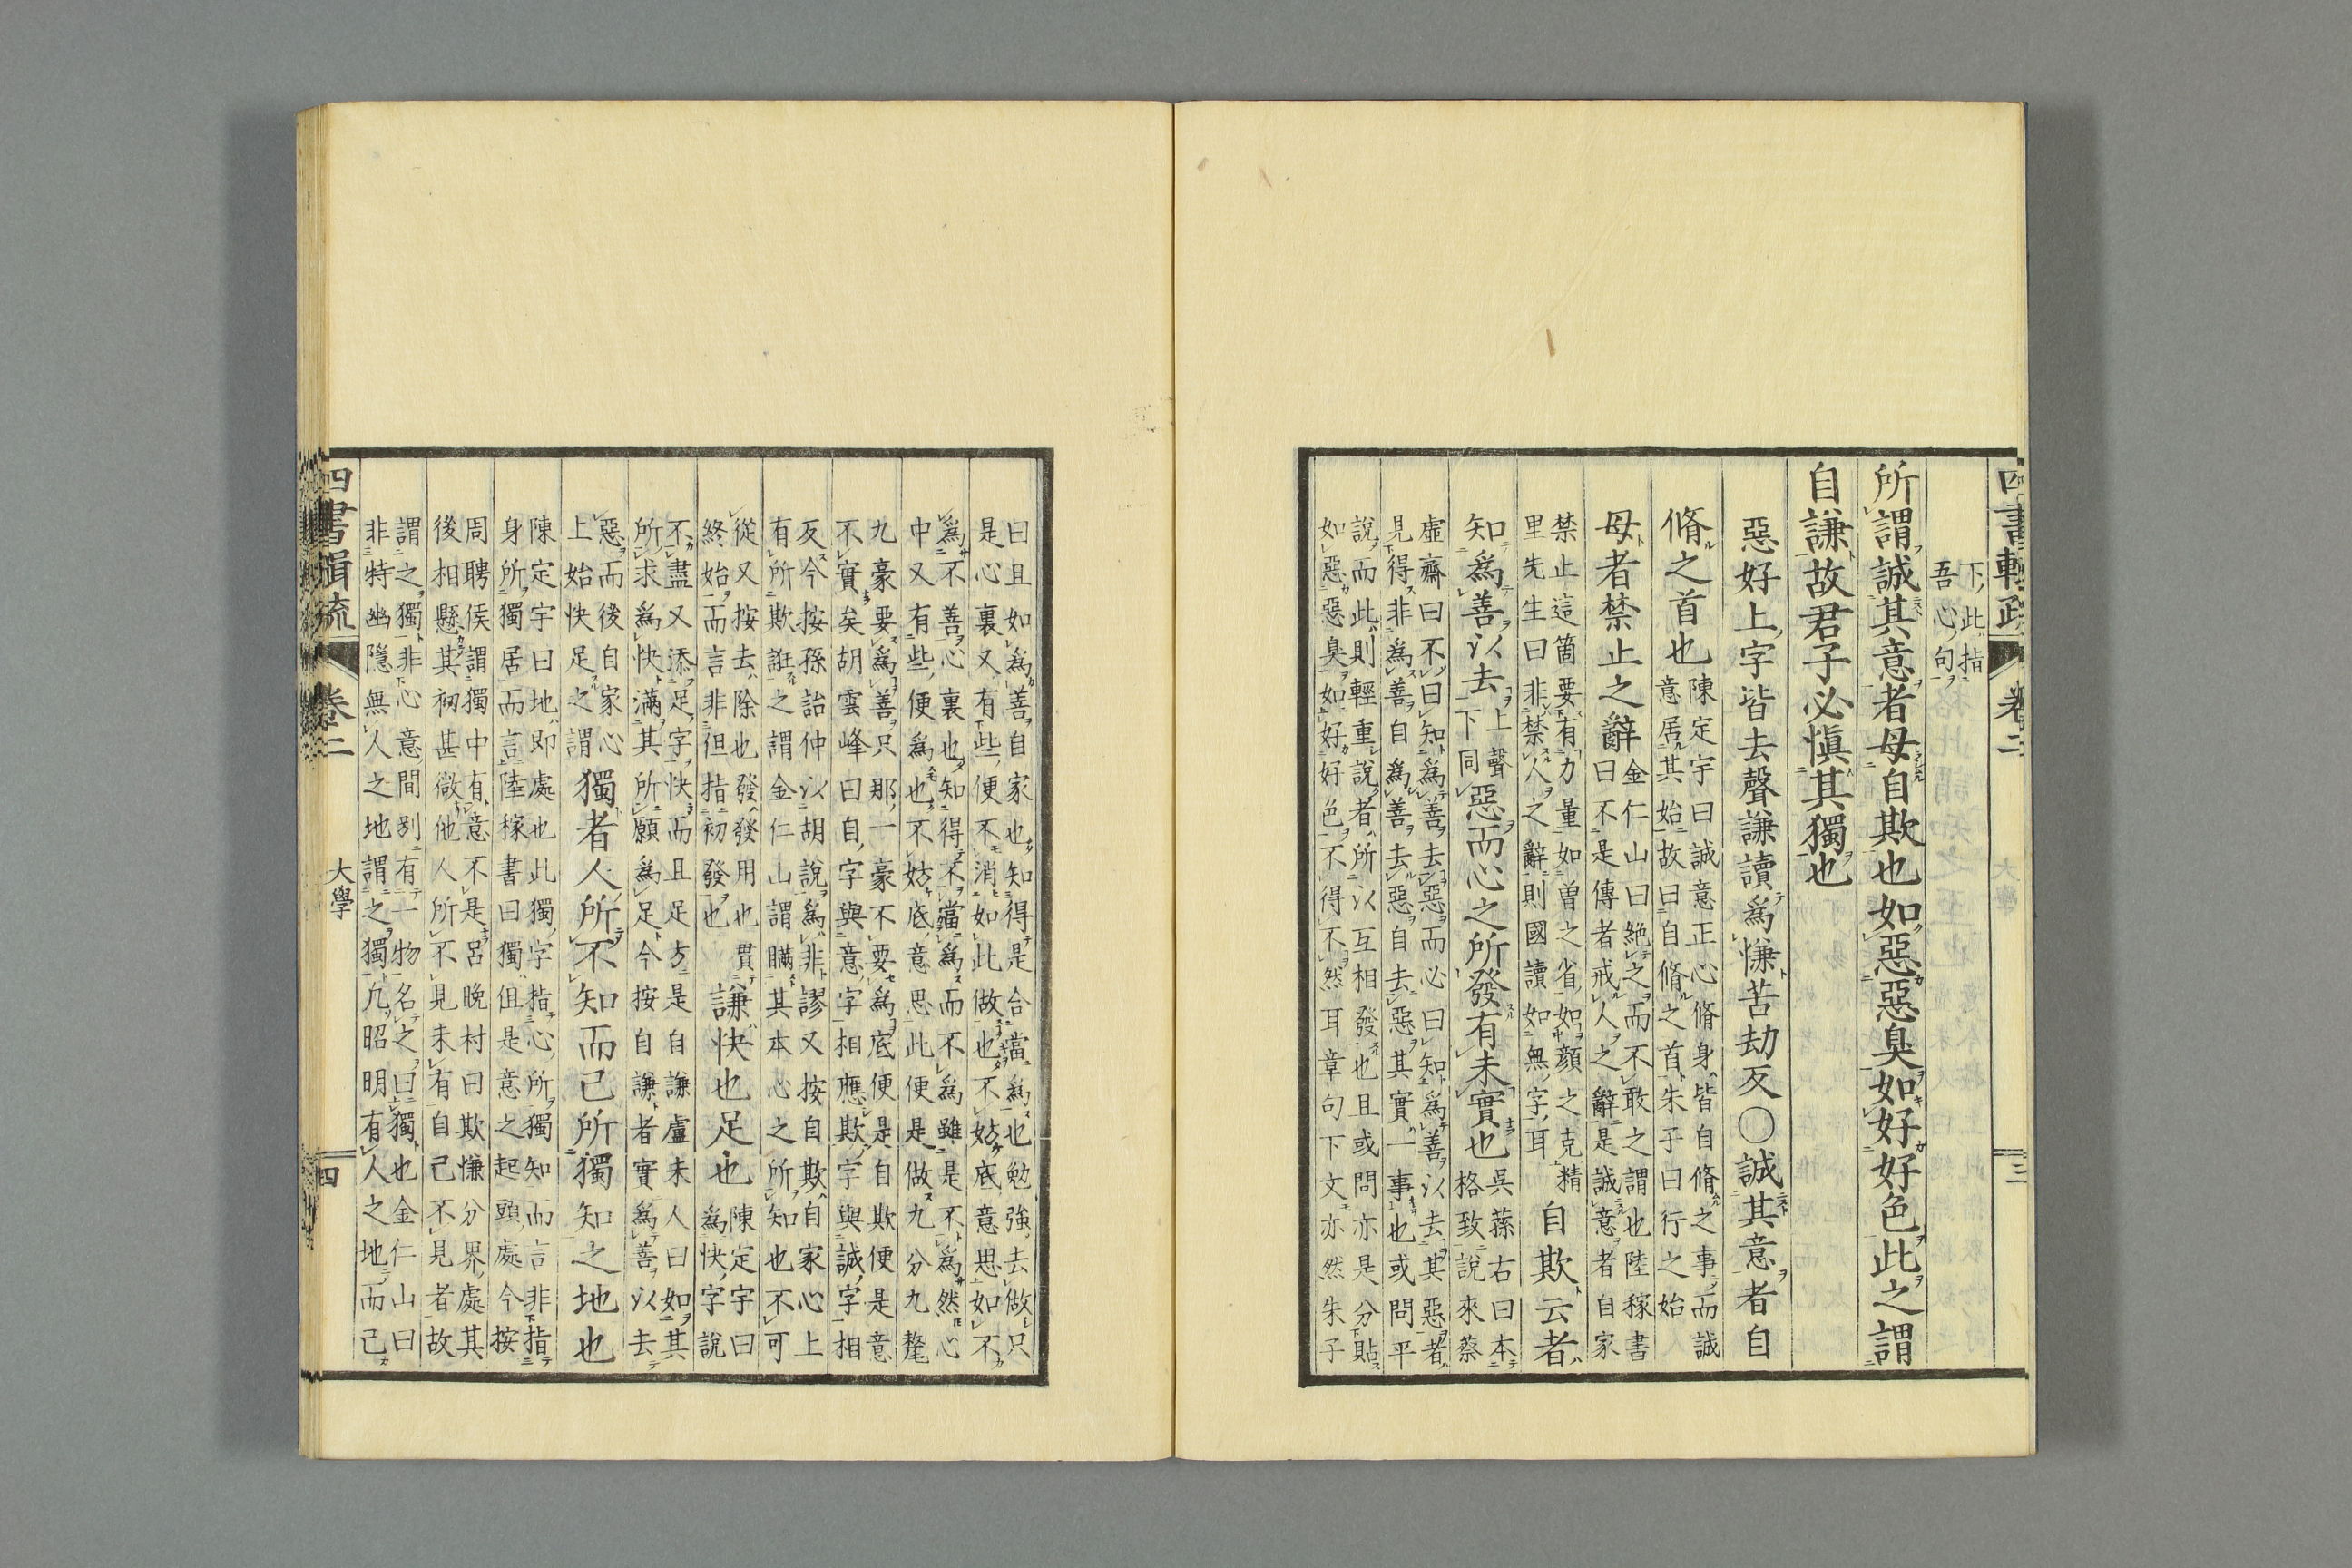 四書輯疏 卷二 大學 三
下此指
吾心句
所謂誠其意者毋自欺也如惡惡臭如好好色此之謂
自謙故君子必愼其獨也
惡好上字皆去聲謙讀爲慊苦劫反○誠其意者自
脩之首也
陳定宇曰誠意正心脩身皆自脩之事而誠
意居其始故曰自脩之首朱子曰行之始
毋者禁止之辭
金仁山曰絶之而不敢之謂也陸稼書
曰不是傳者戒人之辭是誠意者自家
禁止這箇要有力量如曽之省如顔之克精
里先生曰非禁人之辭則國讀如無字耳
自欺云者
知爲善以去
上聲
下同
惡而心之所發有未實也
吳蓀右曰本
格致說來蔡
虛齋曰不曰知爲善去惡而心曰知爲善以去其惡者
見得非爲善自爲善去惡自去惡其實一事也或問平
說而此則輕重說者所以互相發也且或問亦是分貼
如惡惡臭如好好色不得不然耳章句下文亦然朱子
曰且如爲善自家也知得是合當爲也勉強去做只
是心裏又有些便不消如此做也不妨底意思如不
爲不善心裏也知得不當爲而不爲雖是不爲然心
中又有些便爲也不妨底意思此便是做九分九氂
九豪要爲善只那一豪不要爲底便是自欺便是意
不實矣胡雲峰曰自字與意字相應欺字與誠字相
反今按孫詒仲以胡說爲非謬又按自欺自家心上
有所欺誑之謂金仁山謂瞞其本心之所知也不可
從又按去除也發發用也貫
終始而言非但指初發也
謙快也足也
陳定宇曰
爲快字說
不盡又添足字快而且足方是自謙盧未人曰如其
所求爲快滿其所願爲足今按自謙者實爲善以去
惡而後自家心
上始快足之謂
獨者人所不知而己所獨知之地也
陳定宇曰地即處也此獨字指心所獨知而言非指
身所獨居而言陸稼書曰獨但是意之起頭處今按
周聘侯謂獨中有意不是呂晚村曰欺慊分界處其
後相懸其初甚微他人所不見未有自己不見者故
謂之獨非心意間別有一物名之曰獨也金仁山曰
非特幽隱無人之地謂之獨凡昭明有人之地而己
四書輯疏 卷二 大學 四